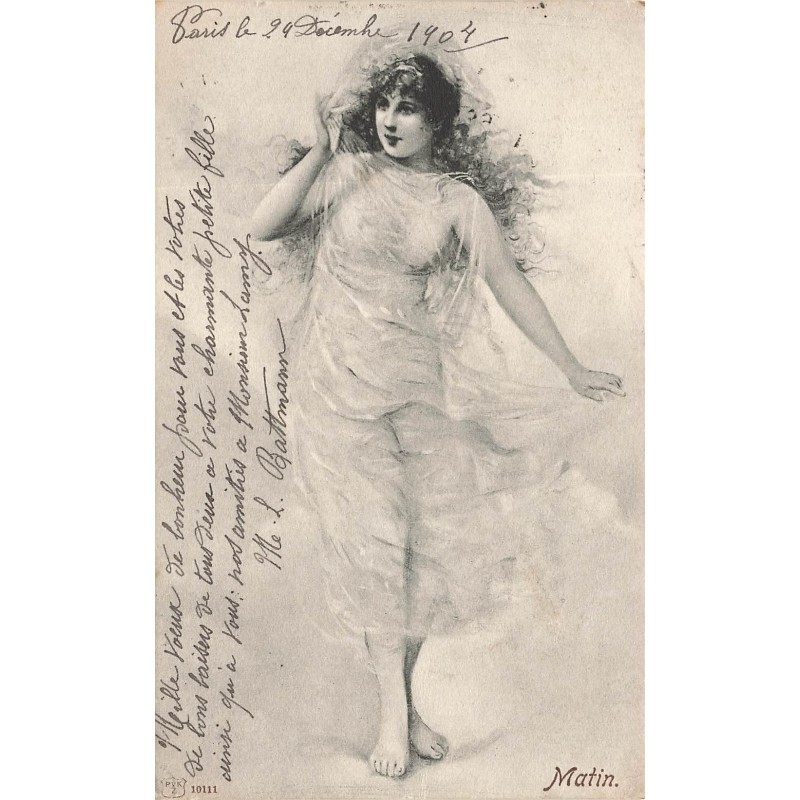 Paris le 29 Décembre 1904
Mille voeux de bonheur pour vous et les votres
de bons baisers de tous deux a votre charmante petite fille
ainsi qu'a vous; nos amitiés a Monsieur Lamy.
M. L. Battmann
Matin.
10111